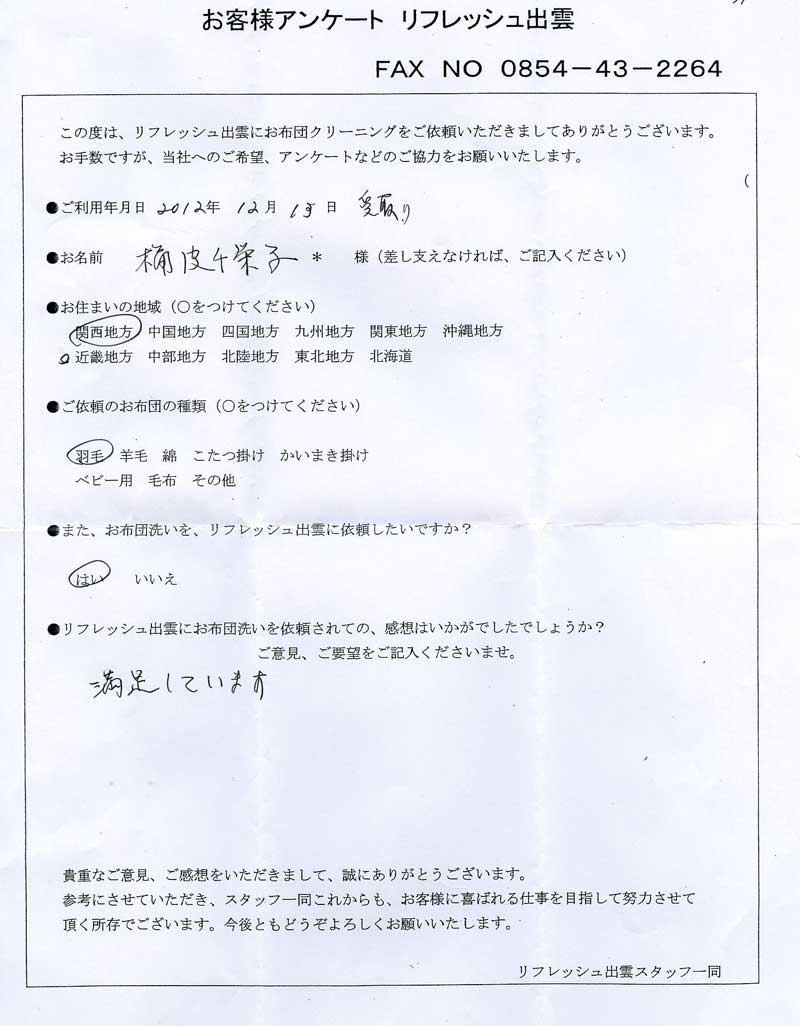 お客様アンケート リフレッシュ出雲
FAX NO 0854-43-2264
この度は、リフレッシュ出雲にお布団クリーニングをご依頼いただきましてありがとうございます。
お手数ですが、当社へのご希望、アンケートなどのご協力をお願いいたします。
●ご利用年月日 2012年 12月 15日 受取り
●お名前 桶皮千栄子 * 様（差し支えなければ、ご記入ください）
●お住まいの地域（○をつけてください）
関西地方 中国地方 四国地方 九州地方 関東地方 沖縄地方
近畿地方 中部地方 北陸地方 東北地方 北海道
●ご依頼のお布団の種類（○をつけてください）
羽毛 羊毛 綿 こたつ掛け かいまき掛け
ベビー用 毛布 その他
●また、お布団洗いを、リフレッシュ出雲に依頼したいですか？
はい いいえ
●リフレッシュ出雲にお布団洗いを依頼されての、感想はいかがでしたでしょうか？
ご意見、ご要望をご記入くださいませ。
満足しています
貴重なご意見、ご感想をいただきまして、誠にありがとうございます。
参考にさせていただき、スタッフ一同これからも、お客様に喜ばれる仕事を目指して努力させて
頂く所存でございます。今後ともどうぞよろしくお願いいたします。
リフレッシュ出雲スタッフ一同